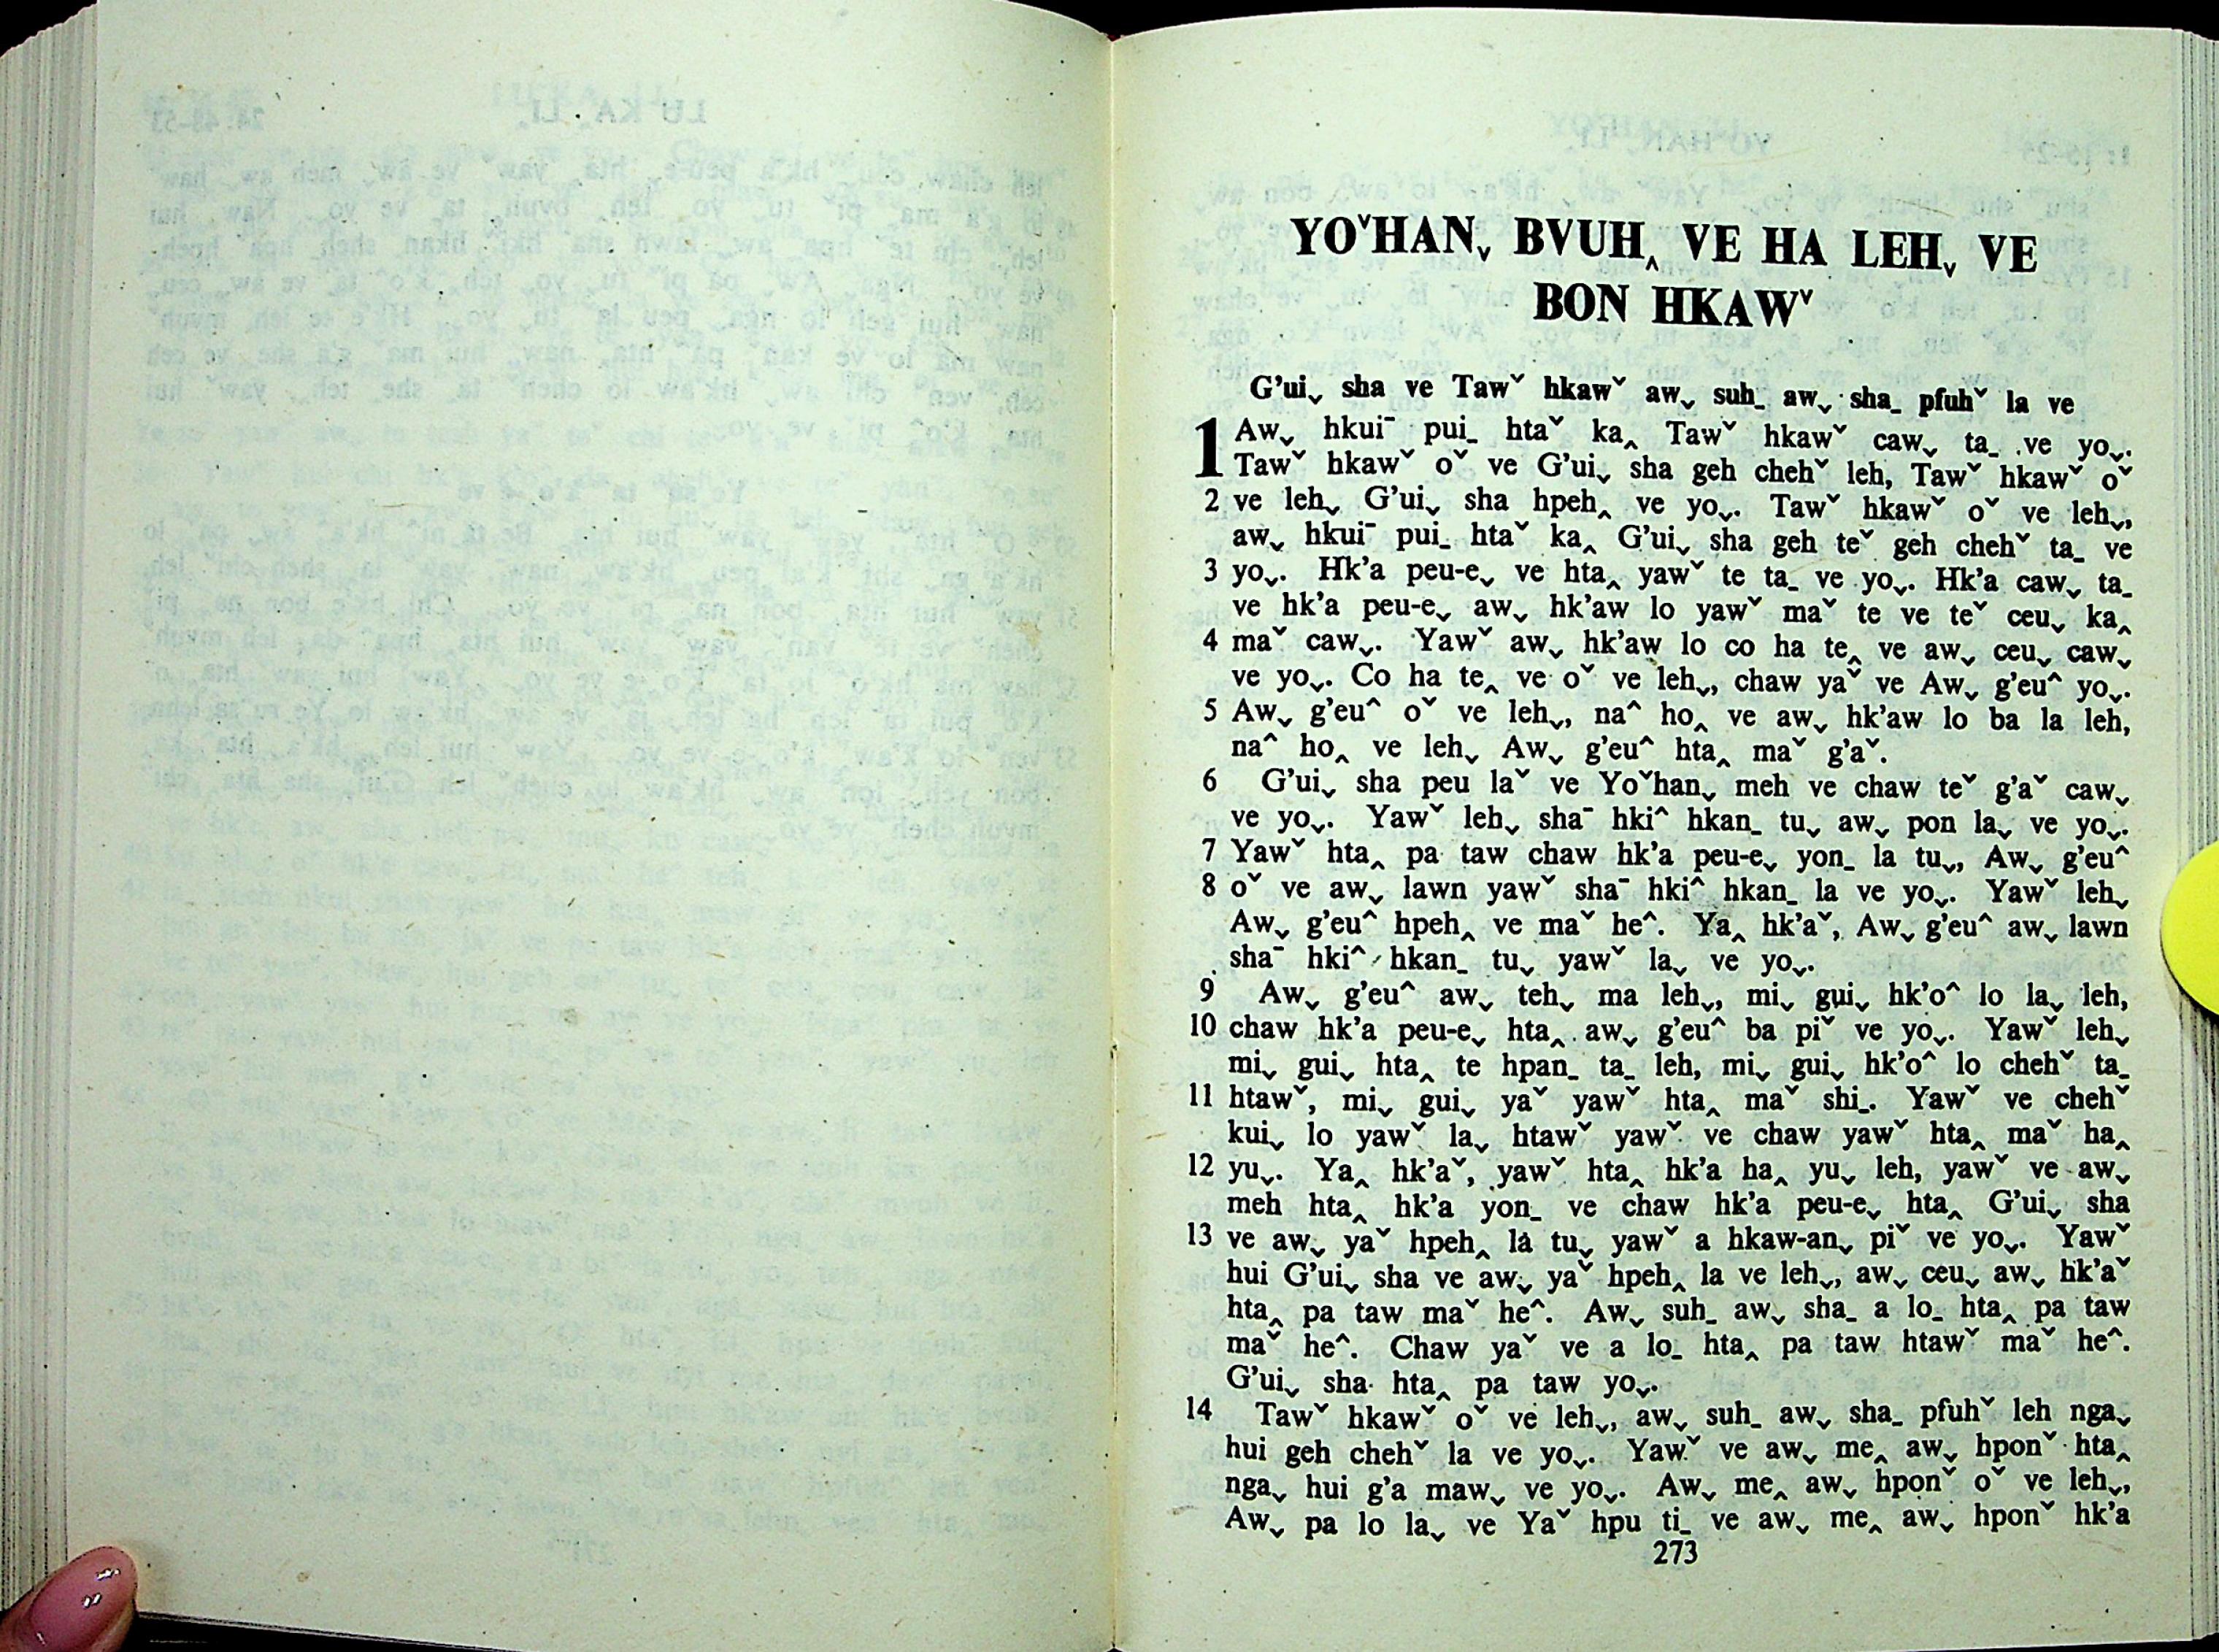 YOˇHANˬ BVUHꞈ VE HA LEHˬ VE
BON HKAWˇ
G’uiˬ sha ve Tawˇ hkawˇ awˬ suhˍ awˬ shaˍ pfuhˇ la ve
1 Awˬ hkuiˉ puiˍ htaˇ kaꞈ Tawˇ hkawˇ cawˬ taˍ ve yoˬ.
Tawˇ hkawˇ oˇ ve G’uiˬ sha geh chehˇ leh, Tawˇ hkawˇ oˇ
2 ve lehˬ G’uiˬ sha hpehꞈ ve yoˬ. Tawˇ hkawˇ oˇ ve lehˬ,
awˬ hkuiˉ puiˍ htaˇ kaꞈ G’uiˬ sha geh teˇ geh chehˇ taˍ ve
3 yoˬ. Hk’a peu-eˬ ve htaꞈ yawˇ te taˍ ve yoˬ. Hk’a cawˬ taˍ
ve hk’a peu-eˬ awˬ hk’aw lo yawˇ maˇ te ve teˇ ceuˬ kaꞈ
4 maˇ cawˬ. Yawˇ awˬ hk’aw lo co ha teꞈ ve awˬ ceuˬ cawˬ
ve yoˬ. Co ha teꞈ ve oˇ ve lehˬ, chaw yaˇ ve Awˬ g’euˆ yoˬ.
5 Awˬ g’euˆ oˇ ve lehˬ, naˆ hoꞈ ve awˬ hk’aw lo ba la leh,
naˆ hoꞈ ve lehˬ Awˬ g’euˆ htaꞈ maˇ g’aˇ.
6 G’uiˬ sha peu laˇ ve Yoˇhanˬ meh ve chaw teˇ g’aˇ cawˬ
ve yoˬ. Yawˇ lehˬ shaˉ hkiˆ hkanˍ tuˬ awˬ pon laˬ ve yoˬ.
7 Yawˇ htaꞈ pa taw chaw hk’a peu-eˬ yonˍ la tuˬ, Awˬ g’euˆ
8 oˇ ve awˬ lawn yawˇ shaˉ hkiˆ hkanˍ la ve yoˬ. Yawˇ lehˬ
Awˬ g’euˆ hpehꞈ ve maˇ heˆ. Yaꞈ hk’aˇ, Awˬ g’euˆ awˬ lawn
shaˉ hkiˆ hkanˍ tuˬ yawˇ laˬ ve yoˬ.
9 Awˬ g’euˆ awˬ tehˬ ma lehˬ, miˬ guiˬ hk’oˆ lo laˬ leh,
10 chaw hk’a peu-eˬ htaꞈ awˬ g’euˆ ba piˇ ve yoˬ. Yawˇ lehˬ
miˬ guiˬ htaꞈ te hpanˍ taˍ leh, miˬ guiˬ hk’oˆ lo chehˇ taˍ
11 htawˇ, miˬ guiˬ yaˇ yawˇ htaꞈ maˇ shiˍ. Yawˇ ve chehˇ
kuiˬ lo yawˇ laˬ htawˇ yawˇ ve chaw yawˇ htaꞈ maˇ haꞈ
12 yuˬ. Yaꞈ hk’aˇ, yawˇ htaꞈ hk’a haꞈ yuˬ leh, yawˇ ve awˬ
meh htaꞈ hk’a yonˍ ve chaw hk’a peu-eˬ htaꞈ G’uiˬ sha
13 ve awˬ yaˇ hpehꞈ la tuˬ yawˇ a hkaw-anˬ piˇ ve yoˬ. Yawˇ
hui G’uiˬ sha ve awˬ yaˇ hpehꞈ la ve lehˬ, awˬ ceuˬ awˬ hk’aˇ
htaꞈ pa taw maˇ heˆ. Awˬ suhˍ awˬ shaˍ a loˍ htaꞈ pa taw
maˇ heˆ. Chaw yaˇ ve a loˍ htaꞈ pa taw htawˇ maˇ heˆ.
G’uiˬ sha htaꞈ pa taw yoˬ.
14 Tawˇ hkawˇ oˇ ve lehˬ, awˬ suhˍ awˬ shaˍ pfuhˇ leh ngaˬ
hui geh chehˇ la ve yoˬ. Yawˇ ve awˬ meꞈ awˬ hponˇ htaꞈ
ngaˬ hui g’a mawˬ ve yoˬ. Awˬ meꞈ awˬ hponˇ oˇ ve lehˬ,
Awˬ pa lo laˬ ve Yaˇ hpu tiˍ ve awˬ meꞈ awˬ hponˇ hk’a
273